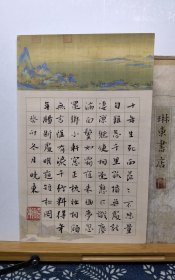 十年生死兩茫〻不思量
自難忘千里孤墳無處話
淒涼縱使相逢應不識塵
滿面鬢如霜夜來幽夢忽
還鄉小軒窗正梳妝相顧
無言惟有淚千行料得年
年腸斷處明月夜短松岡
癸卯冬月 曉東
琳東書店